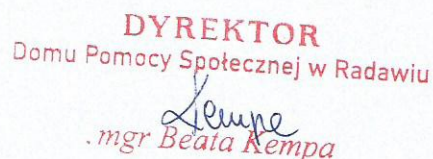 DYREKTOR
Domu Pomocy Społecznej w Radawiu
Kempa
.mgr Beata Kempa